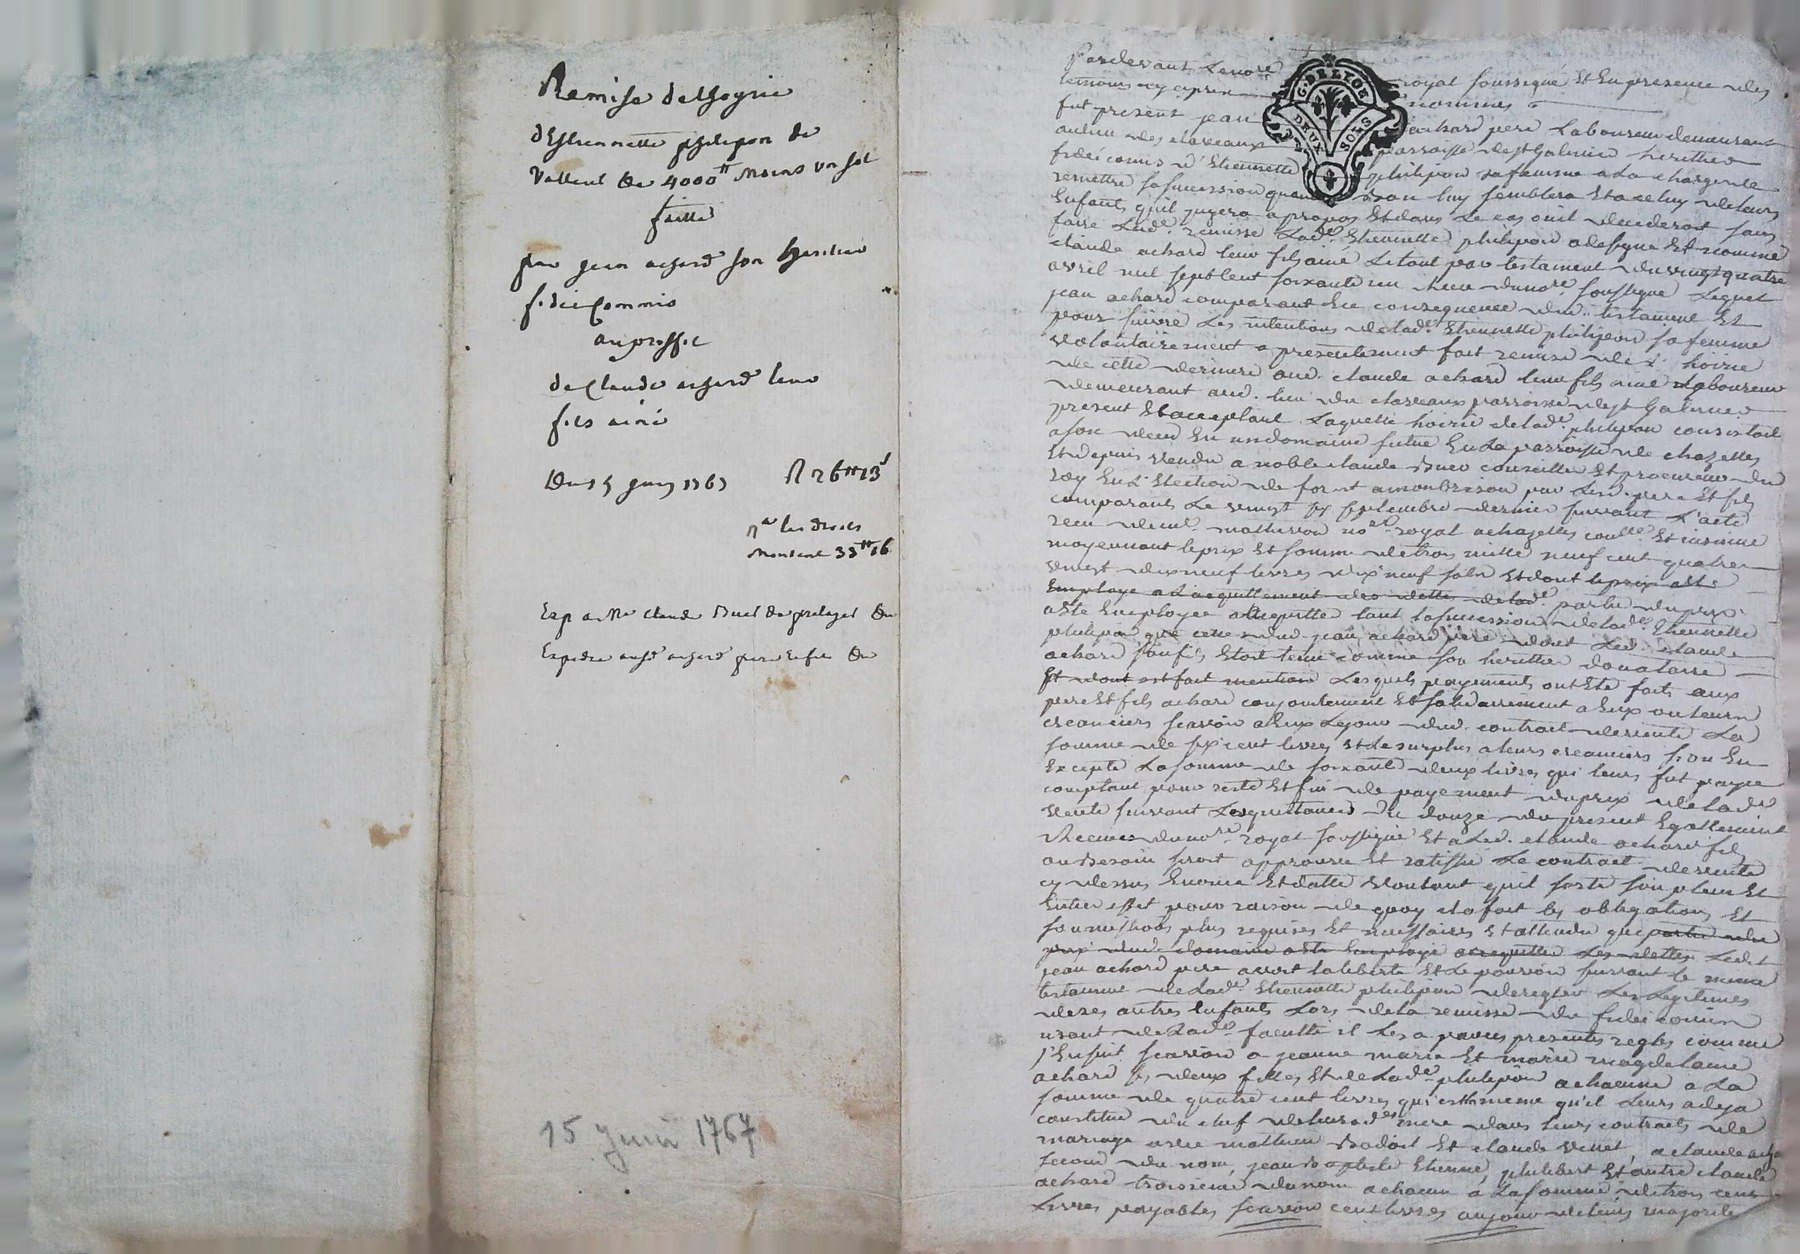 Remise delhoyrie
d'Estiennette philipon de
Vallent de 4000ᵗᵗ moins un sol
faitte
par jean achard son heritier
fideicommis
au proffit
de Claude achard leur
fils ainé
Du 15 juin 1767 R 26ᵗᵗ 13ˢ
les droits
montent 33ᵗᵗ 16
Exp a Mr claude
Expedié aud achard pere
15 juin 1767
G. DE LYON
DEUX SOLS
Pardevant Le noʳᵉ royal soussigné Et En presence des
temoins cy apres nommes
fut present jean achard pere Laboureur demeurant
au lieu des claveaux parroisse de st Galmier heritier
fideicomis d'Etiennette philipon sa femme a La charge de
remettre sa succession quand bon luy semblera Et a celuy de leurs
Enfants qu'il jugera a propos Et dans Le cas ou il decederoit sans
faire Lad. remise Lad. Etiennette philipon a designé Et nommé
claude achard leur fils ainé Le tout par testament du vingt quatre
avril mil sept cent soixante un reçu du noʳᵉ soussigné Lequel
jean achard comparant En consequence dud. testament Et
pour suivre Les intentions de lad. Etiennette philipon sa femme
volontairement a presentement fait remise de L'hoirie
de cette derniere aud. claude achard leur fils ainé Laboureur
demeurant aud. lieu des claveaux parroisse de st Galmier
present Et acceptant Laquelle hoirie de lad. philipon consistoit
En un domaine situé En La parroisse de chazelles
Et depuis vendu a noble claude conseiller Et procureur du
roy En L'Election de forest a montbrison par Led. pere Et fils
comparants Le vingt six septembre dernier suivant L'acte
reçu de mᵉ mathevon noʳᵉ royal a chazelles
moyennant le prix Et somme de trois mille neuf cent quatre
vingt dix neuf livres dix neuf sols Et dont le prix a été
Employé a L'acquittement des dettes de lad. partie du prix
a Eté Employée a acquitter tant la succession de lad. Etiennette
philipon que celle dud. jean achard pere dont Led. claude
achard son fils Etoit tenu comme son heritier donataire
Et dont est fait mention Lesquels payements ont Eté faits aux
pere Et fils achard conjointement Et solidairement a Eux ou leurs
creanciers sçavoir a Eux Le jour dud. contract de vente La
somme de six cent livres Et Le surplus a leurs creanciers
Excepté La somme de soixante deux livres qui leurs fut payée
comptant pour reste Et fin de payement du prix de lad.
vente suivant Les quittances du douze du present Egallement
recues du noʳᵉ royal soussigné Et a Led. claude achard fils
au besoin seroit approuvé Et ratiffié Le contract de vente
cy dessus Enoncé Et datté voulant qu'il sorte son plein Et
Entier effet pour raison de quoy il a fait les obligations Et
soumissions plus requises Et necessaires Et attendu que partie du
prix dud. domaine a Eté Employé a acquitter Les dettes Ledit
jean achard pere avoit la liberté Et Le pouvoir suivant le meme
testament de Lad. Etiennette philipon de regler Les Legitimes
de ses autres Enfants Lors de la remise du fideicomis
usant de Lad. faculté il Les a par ces presentes reglés comme
s'Ensuit sçavoir a jeanne marie Et marie magdelaine
achard ses deux filles Et de Lad. philipon a chacune a La
somme de quatre cent livres qui est la meme qu'il Leurs a deja
constitué du chef de leurd. mere dans leurs contracts de
mariage avec mathieu Et claude a claude achard
second du nom, jean baptiste Etienne, philibert Et autre claude
achard troisieme du nom a chacun a La somme de trois cent
Livres payables sçavoir cent livres au jour de leurs majorité